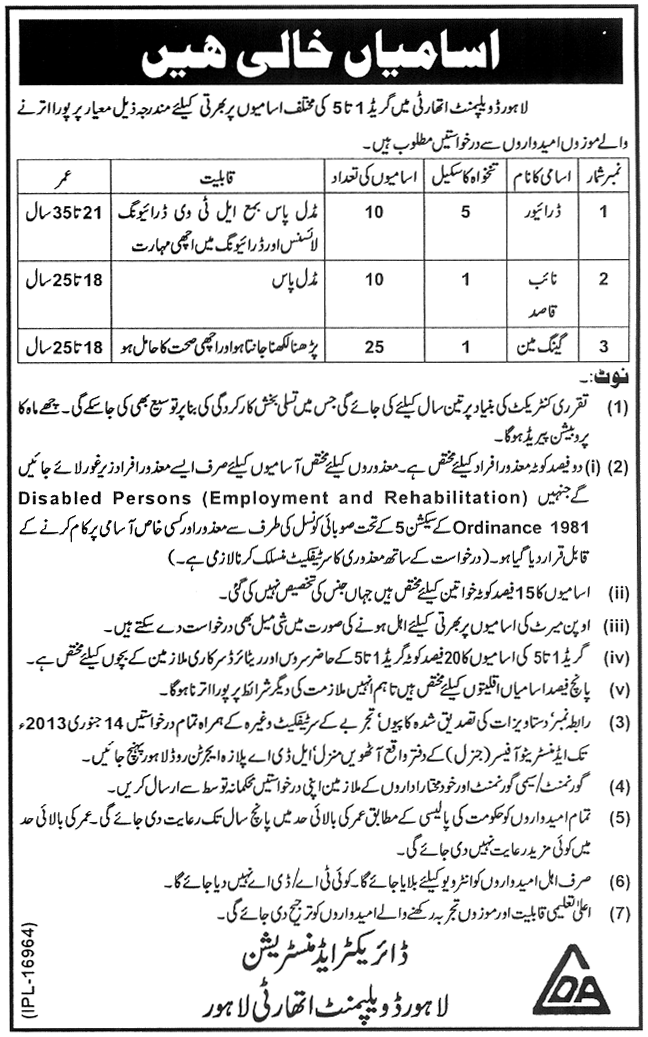 اسامیاں خالی ہیں
لاہور ڈویلپمنٹ اتھارٹی میں گریڈ 1 تا 5 کی مختلف اسامیوں پر بھرتی کیلئے مندرجہ ذیل معیار پر پورا اترنے
والے موزوں امیدواروں سے درخواستیں مطلوب ہیں۔
نمبر شمار اسامی کا نام تنخواہ کا سکیل اسامیوں کی تعداد قابلیت عمر
1 ڈرائیور 5 10 مڈل پاس بمع ایل ٹی وی ڈرائیونگ 21 تا 35 سال
لائسنس اور ڈرائیونگ میں اچھی مہارت
2 نائب 1 10 مڈل پاس 18 تا 25 سال
قاصد
3 گینگ مین 1 25 پڑھنا لکھنا جانتا ہو اور اچھی صحت کا حامل ہو 18 تا 25 سال
نوٹ:۔
(1) تقرری کنٹریکٹ کی بنیاد پر تین سال کیلئے کی جائے گی جس میں تسلی بخش کارکردگی کی بنا پر توسیع بھی کی جا سکے گی۔ چھ ماہ کا
پروبیشن پیریڈ ہوگا۔
(2) (i) دو فیصد کوٹہ معذور افراد کیلئے مختص ہے۔ معذوروں کیلئے مختص آسامیوں کیلئے صرف ایسے معذور افراد زیر غور لائے جائیں
گے جنہیں Disabled Persons (Employment and Rehabilitation)
Ordinance 1981 کے سیکشن 5 کے تحت صوبائی کونسل کی طرف سے معذور اور کسی خاص آسامی پر کام کرنے کے
قابل قرار دیا گیا ہو۔ (درخواست کے ساتھ معذوری کا سرٹیفکیٹ منسلک کرنا لازمی ہے۔)
(ii) اسامیوں کا 15 فیصد کوٹہ خواتین کیلئے مختص ہیں جہاں جنس کی تخصیص نہیں کی گئی۔
(iii) اوپن میرٹ کی اسامیوں پر بھرتی کیلئے اہل ہونے کی صورت میں شی میل بھی درخواست دے سکتے ہیں۔
(iv) گریڈ 1 تا 5 کی اسامیوں کا 20 فیصد کوٹہ گریڈ 1 تا 5 کے حاضر سروس اور ریٹائرڈ سرکاری ملازمین کے بچوں کیلئے مختص ہے۔
(v) پانچ فیصد اسامیاں اقلیتوں کیلئے مختص ہیں تاہم انہیں ملازمت کی دیگر شرائط پر پورا اترنا ہوگا۔
(3) رابطہ نمبر، دستاویزات کی تصدیق شدہ کاپیوں، تجربے کے سرٹیفکیٹ وغیرہ کے ہمراہ تمام درخواستیں 14 جنوری 2013ء
تک ایڈمنسٹریٹو آفیسر (جنرل) کے دفتر واقع آٹھویں منزل، ایل ڈی اے پلازہ ایجرٹن روڈ لاہور پہنچ جائیں۔
(4) گورنمنٹ / سیمی گورنمنٹ اور خود مختار اداروں کے ملازمین اپنی درخواستیں محکمانہ توسط سے ارسال کریں۔
(5) تمام امیدواروں کو حکومت کی پالیسی کے مطابق عمر کی بالائی حد میں پانچ سال تک رعایت دی جائے گی۔ عمر کی بالائی حد
میں کوئی مزید رعایت نہیں دی جائے گی۔
(6) صرف اہل امیدواروں کو انٹرویو کیلئے بلایا جائے گا۔ کوئی ٹی اے / ڈی اے نہیں دیا جائے گا۔
(7) اعلیٰ تعلیمی قابلیت اور موزوں تجربہ رکھنے والے امیدواروں کو ترجیح دی جائے گی۔
ڈائریکٹر ایڈمنسٹریشن
لاہور ڈویلپمنٹ اتھارٹی لاہور
LDA
(IPL-16964)